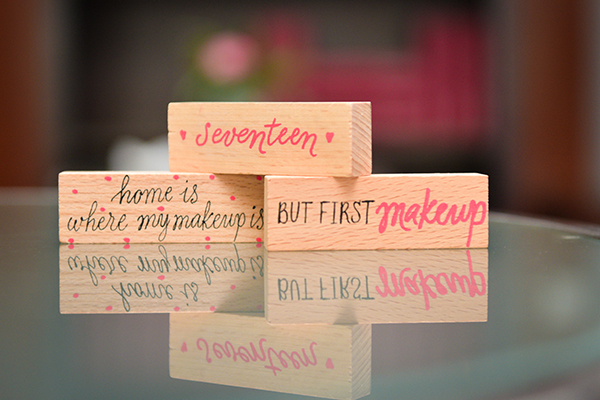 seventeen
home is
where my makeup is
BUT FIRST makeup